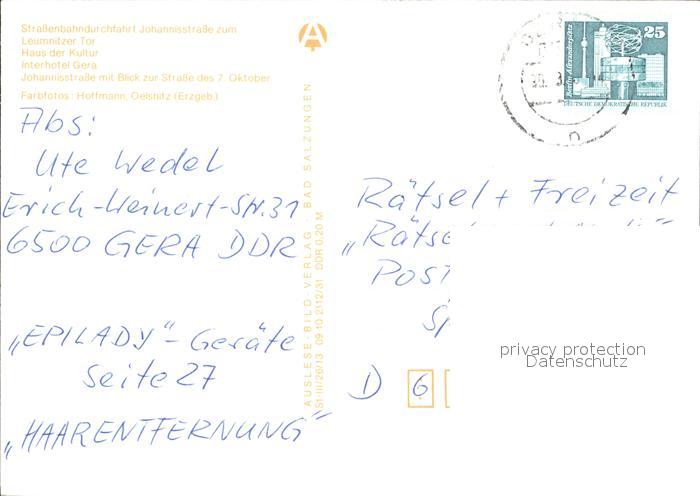 Straßenbahndurchfahrt Johannisstraße zum
Leumnitzer Tor
Haus der Kultur
Interhotel Gera
Johannisstraße mit Blick zur Straße des 7. Oktober
Farbfotos: Hoffmann, Oelsnitz (Erzgeb.)
Abs:
Ute Wedel
Erich-Weinert-Str. 31
6500 GERA DDR
„EPILADY“-Geräte
Seite 27
„HAARENTFERNUNG“
AUSLESE-BILD-VERLAG · BAD SALZUNGEN
S1·III/26/13 09 10 2112/31 DDR 0,20 M
25
Berlin, Alexanderplatz
DEUTSCHE DEMOKRATISCHE REPUBLIK
Rätsel + Freizeit
D 6
privacy protection
Datenschutz